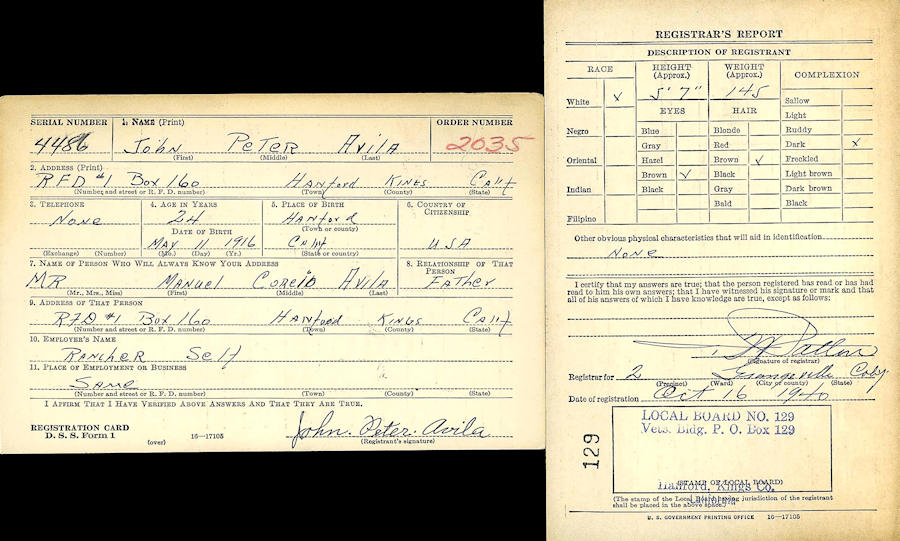 SERIAL NUMBER 1. NAME (Print) ORDER NUMBER
4486 John Peter Avila 2035
(First) (Middle) (Last)
2. ADDRESS (Print)
RFD #1 Box 160 Hanford Kings Calif
(Number and street or R. F. D. number) (Town) (County) (State)
3. TELEPHONE 4. AGE IN YEARS 5. PLACE OF BIRTH 6. COUNTRY OF CITIZENSHIP
None 24 Hanford
DATE OF BIRTH (Town or county)
May 11 1916 Calif USA
(Exchange) (Number) (Mo.) (Day) (Yr.) (State or country)
7. NAME OF PERSON WHO WILL ALWAYS KNOW YOUR ADDRESS 8. RELATIONSHIP OF THAT PERSON
MR Manuel Avila Father
(Mr., Mrs., Miss) (First) (Middle) (Last)
9. ADDRESS OF THAT PERSON
RFD #1 Box 160 Hanford Kings Calif
(Number and street or R. F. D. number) (Town) (County) (State)
10. EMPLOYER'S NAME
Rancher Self
11. PLACE OF EMPLOYMENT OR BUSINESS
Same
(Number and street or R. F. D. number) (Town) (County) (State)
I AFFIRM THAT I HAVE VERIFIED ABOVE ANSWERS AND THAT THEY ARE TRUE.
REGISTRATION CARD
D. S. S. Form 1 (over) 16—17105 John. Peter. Avila
(Registrant's signature)
REGISTRAR'S REPORT
DESCRIPTION OF REGISTRANT
RACE HEIGHT (Approx.) WEIGHT (Approx.) COMPLEXION
White x 5' 7" 145 Sallow
EYES HAIR Light
Negro Blue Blonde Ruddy
Gray Red Dark x
Oriental Hazel Brown ✓ Freckled
Brown ✓ Black Light brown
Indian Black Gray Dark brown
Bald Black
Filipino
Other obvious physical characteristics that will aid in identification
None
I certify that my answers are true; that the person registered has read or has had
read to him his own answers; that I have witnessed his signature or mark and that
all of his answers of which I have knowledge are true, except as follows:
(Signature of registrar)
Registrar for 2
(Precinct) (Ward) (City or county) (State)
Date of registration Oct 16 1940
LOCAL BOARD NO. 129
Vets. Bldg. P. O. Box 129
129
(STAMP OF LOCAL BOARD)
Hanford, Kings Co.
California
(The stamp of the Local Board having jurisdiction of the registrant
shall be placed in the above space.)
U. S. GOVERNMENT PRINTING OFFICE 16—17105